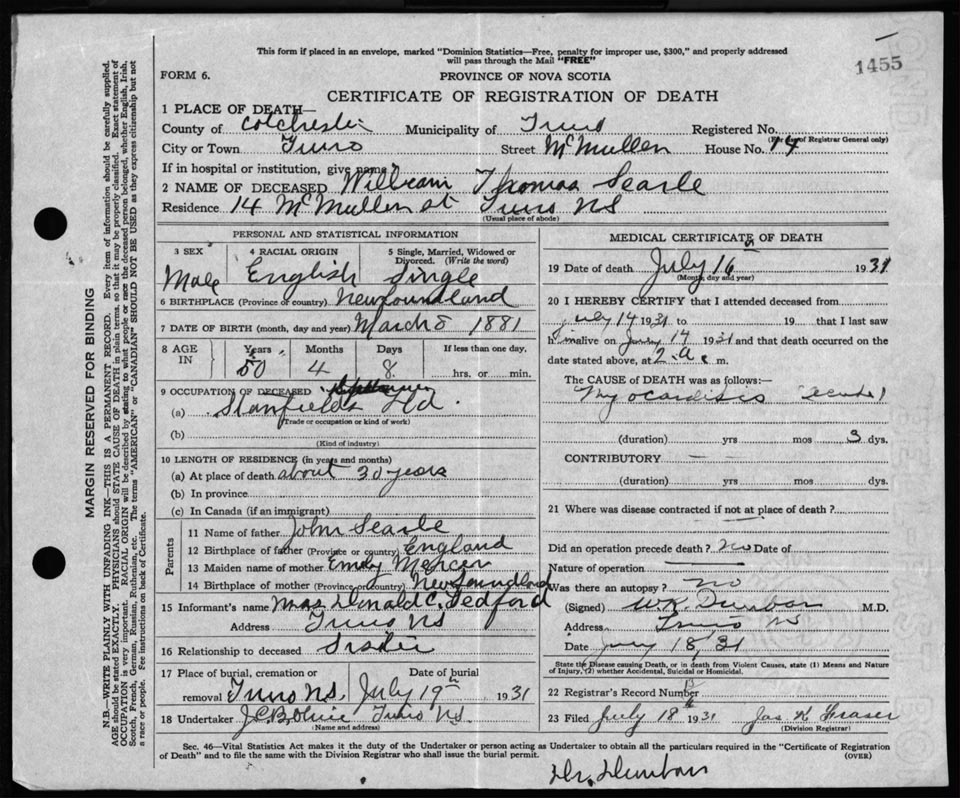 This form if placed in an envelope, marked "Dominion Statistics—Free, penalty for improper use, $300," and properly addressed
will pass through the Mail "FREE"
1455
FORM 6.
PROVINCE OF NOVA SCOTIA
CERTIFICATE OF REGISTRATION OF DEATH
1 PLACE OF DEATH—
County of Colchester Municipality of Truro Registered No.
(For use of Registrar General only)
City or Town Truro Street McMullen House No. 14
If in hospital or institution, give name
2 NAME OF DECEASED William Thomas Searle
Residence 14 McMullen st Truro NS
(Usual place of abode)
PERSONAL AND STATISTICAL INFORMATION
3 SEX 4 RACIAL ORIGIN 5 Single, Married, Widowed or
Divorced. (Write the word)
Male English Single
6 BIRTHPLACE (Province or country) Newfoundland
7 DATE OF BIRTH (month, day and year) March 8 1881
8 AGE IN Years Months Days If less than one day.
50 4 8 hrs. or min.
9 OCCUPATION OF DECEASED
(a) Stanfields Ltd.
(Trade or occupation or kind of work)
(b)
(Kind of industry)
10 LENGTH OF RESIDENCE (in years and months)
(a) At place of death about 30 years
(b) In province
(c) In Canada (if an immigrant)
Parents
11 Name of father John Searle
12 Birthplace of father (Province or country) England
13 Maiden name of mother Emily Mercer
14 Birthplace of mother (Province or country) Newfoundland
15 Informant's name Mrs Donald C. Tedford
Address Truro NS
16 Relationship to deceased Sister
17 Place of burial, cremation or Date of burial
removal Truro N.S. July 19th 1931
18 Undertaker Truro N.S.
(Name and address)
MEDICAL CERTIFICATE OF DEATH
19 Date of death July 16 1931
(Month, day and year)
20 I HEREBY CERTIFY that I attended deceased from
July 14 1931 to 19 that I last saw
him alive on July 14 1931 and that death occurred on the
date stated above, at 2. a. m.
The CAUSE OF DEATH was as follows:
Myocarditis (acute)
(duration) yrs mos 3 dys.
CONTRIBUTORY
(duration) yrs mos dys.
21 Where was disease contracted if not at place of death?
Did an operation precede death? No Date of
Nature of operation
Was there an autopsy? no
(Signed) W.R. Dunbar M.D.
Address Truro NS
Date July 18/31
State the Disease causing Death, or in death from Violent Causes, state (1) Means and Nature
of Injury, (2) whether Accidental, Suicidal or Homicidal.
22 Registrar's Record Number
23 Filed July 18th 1931 Jas K Fraser
(Division Registrar)
Sec. 46—Vital Statistics Act makes it the duty of the Undertaker or person acting as Undertaker to obtain all the particulars required in the "Certificate of Registration
of Death" and to file the same with the Division Registrar who shall issue the burial permit.
(OVER)
Dr. Dunbar
MARGIN RESERVED FOR BINDING
N.B.—WRITE PLAINLY WITH UNFADING INK—THIS IS A PERMANENT RECORD. Every item of information should be carefully supplied.
AGE should be stated EXACTLY. PHYSICIANS should STATE CAUSE OF DEATH in plain terms, so that it may be properly classified. Exact statement of
OCCUPATION is very important. RACIAL ORIGIN will be described by stating to what people or race the deceased person belonged, whether English, Irish,
Scotch, French, German, Russian, Ruthenian, etc. The terms "AMERICAN" or "CANADIAN" SHOULD NOT BE USED as they express citizenship but not
a race or people. See instructions on back of Certificate.